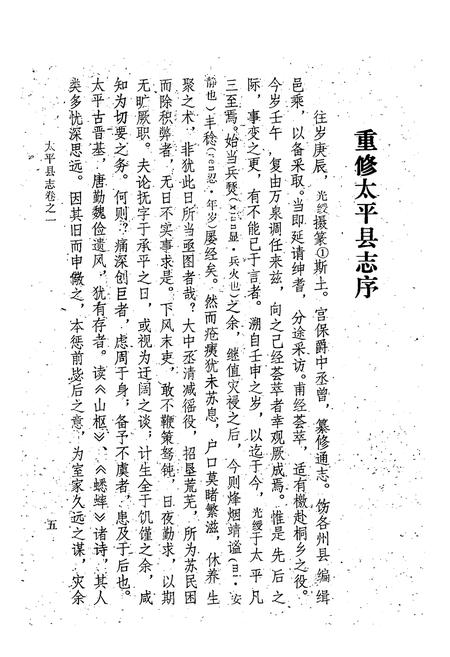 重修太平县志序
往岁庚辰，光绶摄篆①斯土。宫保爵中丞曾，纂修通志。饬各州县编缉
邑乘，以备采取。当即延请绅耆，分途采访。甫经荟萃，适有檄赴桐乡之役。
今岁壬午，复由万泉调任来兹，向之已经荟萃者幸观厥成焉。惟是先后之
际，事变之更，有不能已于言者。溯自壬申之岁，以迄于今，光绶于太平凡
三至焉。始当兵燹(xiǎn显·兵火也)之余，继值灾祲之后，今则烽烟靖谧(mì·安
静也)，丰稔(rěn忍·年岁)屡经矣。然而疮痍犹未苏息，户口莫睹繁滋，休养生
聚之术，非犹此日所当亟图者哉？大中丞清减徭役，招垦荒芜，所为苏民困
而除积弊者，无日不实事求是。下风末吏，敢不鞭策驽钝，日夜勤求，以期
无旷厥职。夫论抚字于承平之日，或视为迂阔之谈；计生全于饥馑之余，咸
知为切要之务。何则？痛深创巨者，虑周于身；备予不虞者，患及于后也。
太平古晋基，唐勤魏俭遗风，犹有存者。读《山枢》、《蟋蟀》诸诗，其人
类多忧深思远。因其旧而申儆之，本惩前毖后之意，为室家久远之谋，灾余
太平县志卷之一
五